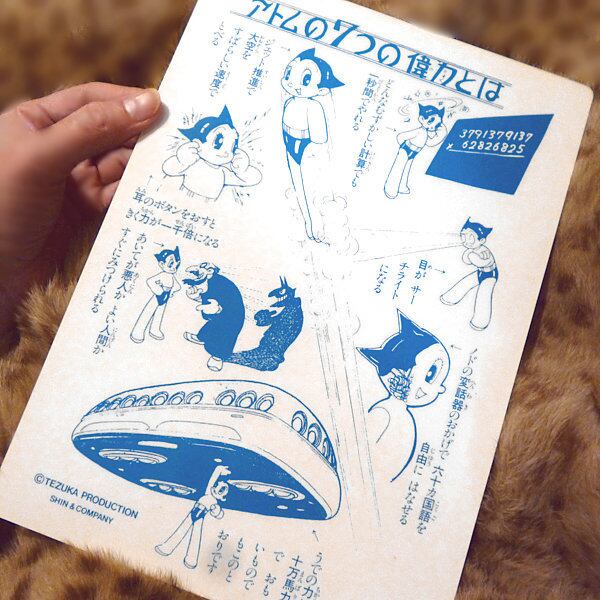 アトムの7つの偉力とは
どんなむずかしい計算でも
一秒間でやれる
3791379137
× 62826825
ジェット推進で
大空を
すばらしい速度で
とべる
耳のボタンをおすと
きく力が一千倍になる
目がサー
チライト
になる
あいてが悪人か よい人間か
すぐにみつけられる
ノドの変話器のおかげで 六十カ国語を
自由に はなせる
うでの力
十万馬力
で おも
いもので
もこのと
おりです
©TEZUKA PRODUCTION
SHIN & COMPANY